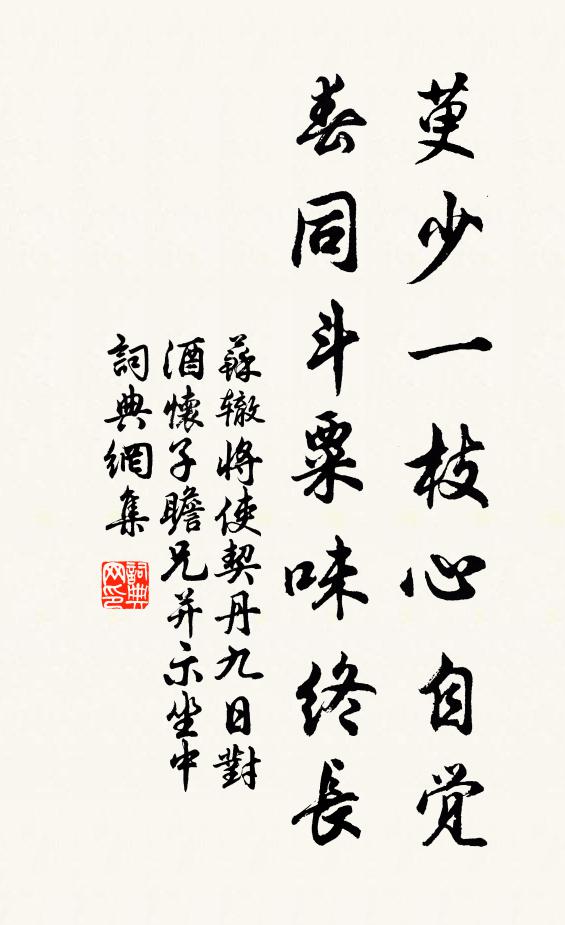 萸少一枝心自觉
春同斗粟味终長
蘇辙将使契丹九日對
酒懷子瞻兄并示坐中
詞典網集
詞典网印